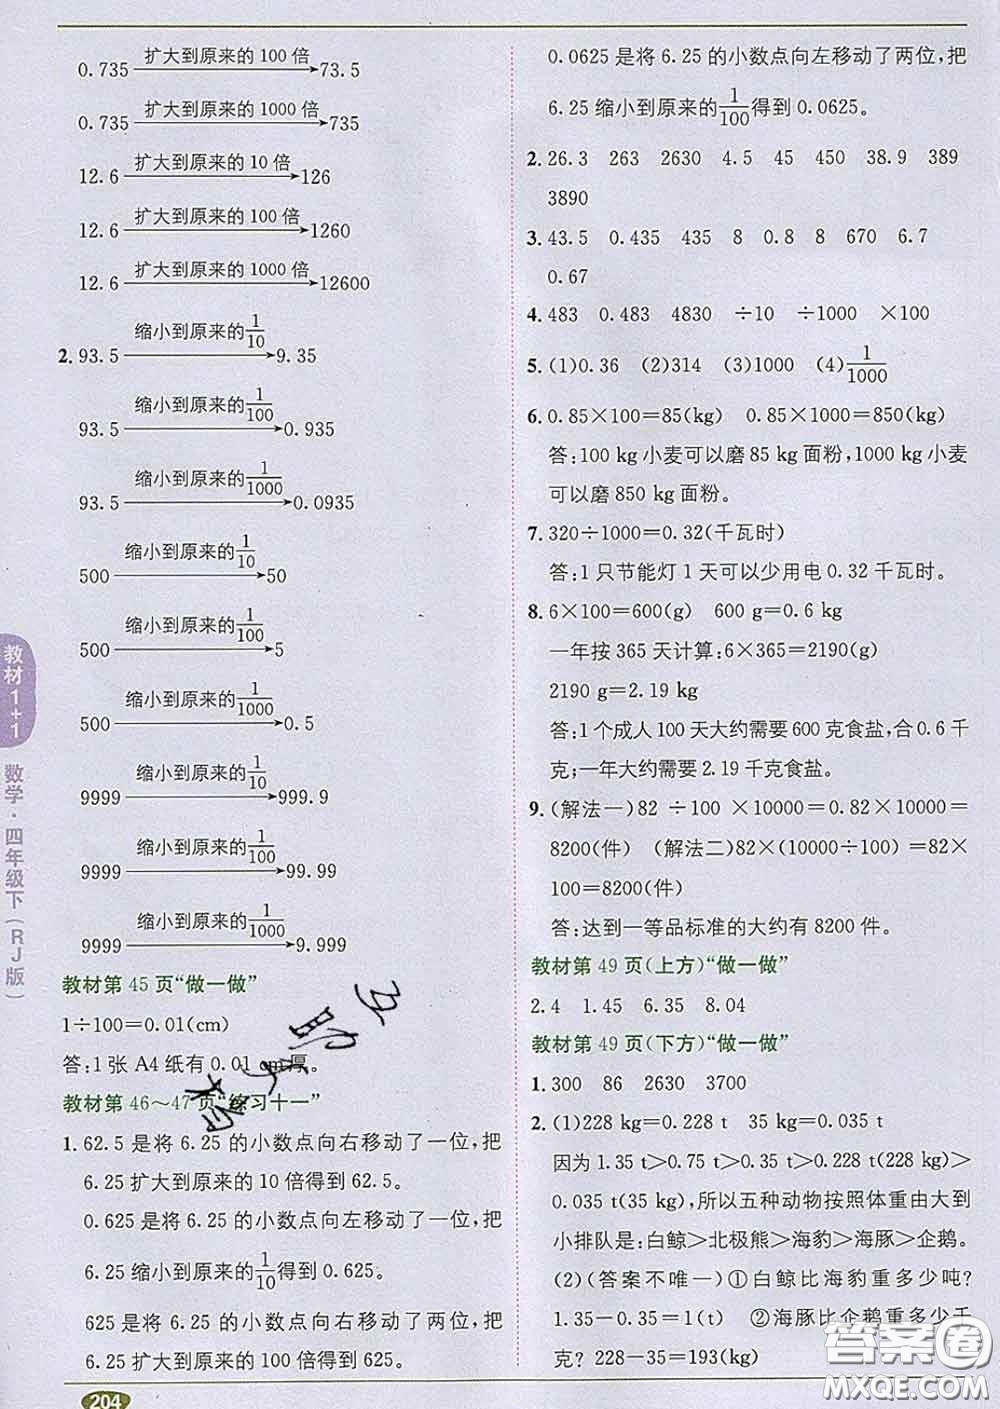 扩大到原来的 100 倍
0.735 → 73.5
扩大到原来的 1000 倍
0.735 → 735
扩大到原来的 10 倍
12.6 → 126
扩大到原来的 100 倍
12.6 → 1260
扩大到原来的 1000 倍
12.6 → 12600
缩小到原来的 1/10
2. 93.5 → 9.35
缩小到原来的 1/100
93.5 → 0.935
缩小到原来的 1/1000
93.5 → 0.0935
缩小到原来的 1/10
500 → 50
缩小到原来的 1/100
500 → 5
缩小到原来的 1/1000
500 → 0.5
缩小到原来的 1/10
9999 → 999.9
缩小到原来的 1/100
9999 → 99.99
缩小到原来的 1/1000
9999 → 9.999
教材第 45 页“做一做”
1÷100=0.01(cm)
答:1 张 A4 纸有 0.01 cm 厚。
教材第 46～47 页“练习十一”
1. 62.5 是将 6.25 的小数点向右移动了一位,把
6.25 扩大到原来的 10 倍得到 62.5。
0.625 是将 6.25 的小数点向左移动了一位,把
6.25 缩小到原来的 1/10 得到 0.625。
625 是将 6.25 的小数点向右移动了两位,把
6.25 扩大到原来的 100 倍得到 625。
0.0625 是将 6.25 的小数点向左移动了两位,把
6.25 缩小到原来的 1/100 得到 0.0625。
2. 26.3 263 2630 4.5 45 450 38.9 389
3890
3. 43.5 0.435 435 8 0.8 8 670 6.7
0.67
4. 483 0.483 4830 ÷10 ÷1000 ×100
5. (1)0.36 (2)314 (3)1000 (4)1/1000
6. 0.85×100=85(kg) 0.85×1000=850(kg)
答:100 kg 小麦可以磨 85 kg 面粉,1000 kg 小麦
可以磨 850 kg 面粉。
7. 320÷1000=0.32(千瓦时)
答:1 只节能灯 1 天可以少用电 0.32 千瓦时。
8. 6×100=600(g) 600 g=0.6 kg
一年按 365 天计算:6×365=2190(g)
2190 g=2.19 kg
答:1 个成人 100 天大约需要 600 克食盐,合 0.6 千
克;一年大约需要 2.19 千克食盐。
9. (解法一)82 ÷100 ×10000=0.82×10000=
8200(件) (解法二)82×(10000÷100)=82×
100=8200(件)
答:达到一等品标准的大约有 8200 件。
教材第 49 页(上方)“做一做”
2.4 1.45 6.35 8.04
教材第 49 页(下方)“做一做”
1. 300 86 2630 3700
2. (1)228 kg=0.228 t 35 kg=0.035 t
因为 1.35 t>0.75 t>0.35 t>0.228 t(228 kg)>
0.035 t(35 kg),所以五种动物按照体重由大到
小排队是:白鲸>北极熊>海豹>海豚>企鹅。
(2)(答案不唯一)①白鲸比海豹重多少吨?
1.35-0.35=1(t) ②海豚比企鹅重多少千
克? 228-35=193(kg)
教材1+1
数学·四年级下(RJ版)
204
答案圈
MXQE.COM